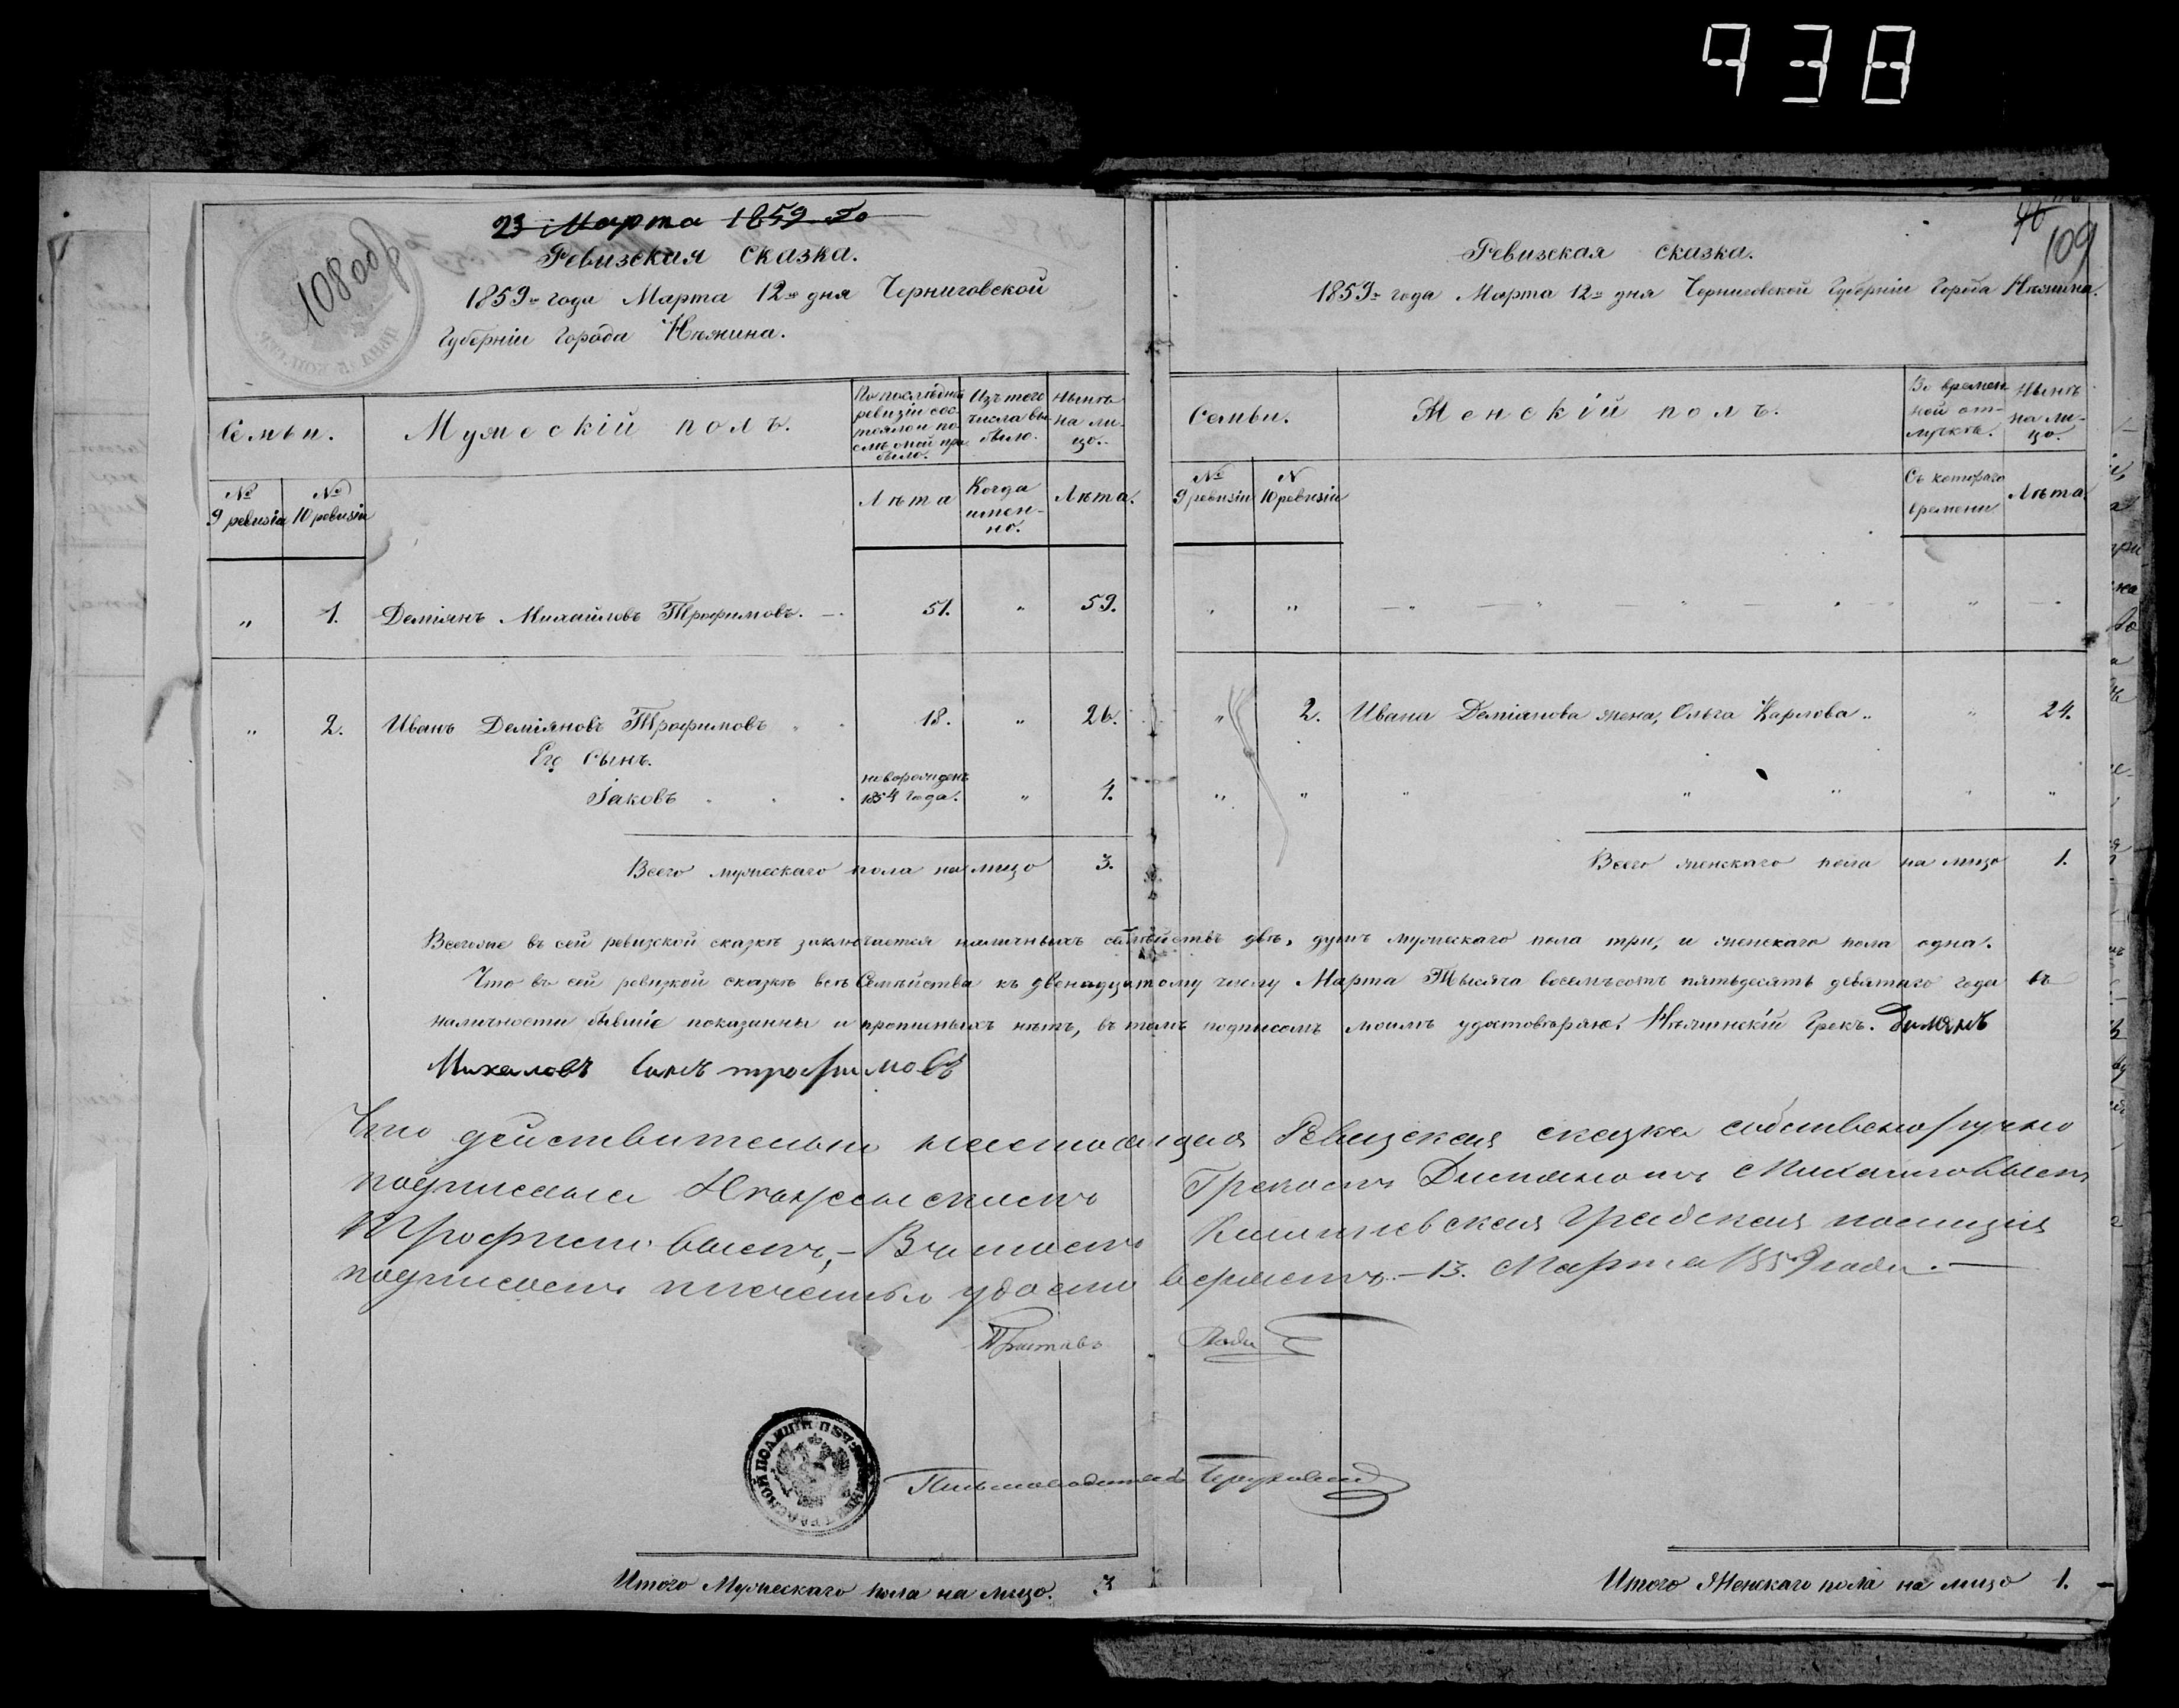 938
23 Марта 1859 Го
108 обр
Ревизская сказка.
1859го года Марта 12го дня Черниговской
Губерніи Города Нѣжина.
Семьи.
Мужескій полъ.
По послѣдней ревизіи состояло и послѣ оной прибыло.
Изъ того числа выбыло.
Нынѣ на лицо.
№ 9 ревизіи
№ 10 ревизіи
Лѣта
Когда именно.
Лѣта.
„ 1. Деміянъ Михайловъ Трофимовъ. — 51. „ 59.
„ 2. Иванъ Деміяновъ Трофимовъ 18. „ 26.
Его Сынъ.
Іаковъ новорожденъ 1854 года. „ 4.
Всего мужескаго пола на лицо 3.
109
Ревизская сказка.
1859го года Марта 12го дня Черниговской Губерніи Города Нѣжина.
Семьи.
Женскій полъ.
Во временной отлучкѣ.
Нынѣ на лицо.
№ 9 ревизіи
N 10 ревизіи
Съ котораго времени
Лѣта
„ 2. Ивана Деміянова жена, Ольга Карлова „ „ 24.
Всего женскаго пола на лицо 1.
Всего же въ сей ревизской сказкѣ заключается наличныхъ семѣйствъ двѣ, душъ мужескаго пола три, и женскаго пола одна.
Что въ сей ревизкой сказкѣ всѣ Семѣйства къ двенадцатому числу Марта Тысяча восемьсотъ пятьдесятъ девятаго года въ
наличности бывшіе показанны и прописныхъ нѣтъ, въ томъ подписомъ моимъ удостовѣряю. Нѣжинскій Грекъ. Димянъ
Михаловъ Синъ трофимовъ
Что действительно настоящая Ревизская сказка собственоручно
подписана Нежинскимъ Грекомъ Диміяномъ Михайловымъ
Трофимовымъ, — В чемъ Кишиневская Градская полиция
подписомъ и печатью удостоверяетъ. — 13. Марта 1859 года. —
Приставъ
Письмоводитель
Итого Мужескаго пола на лицо. 3
Итого Женскаго пола на лицо 1.